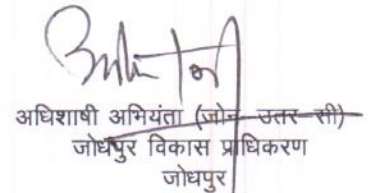 अधिशाषी अभियंता (जोन उतर-सी)
जोधपुर विकास प्राधिकरण
जोधपुर